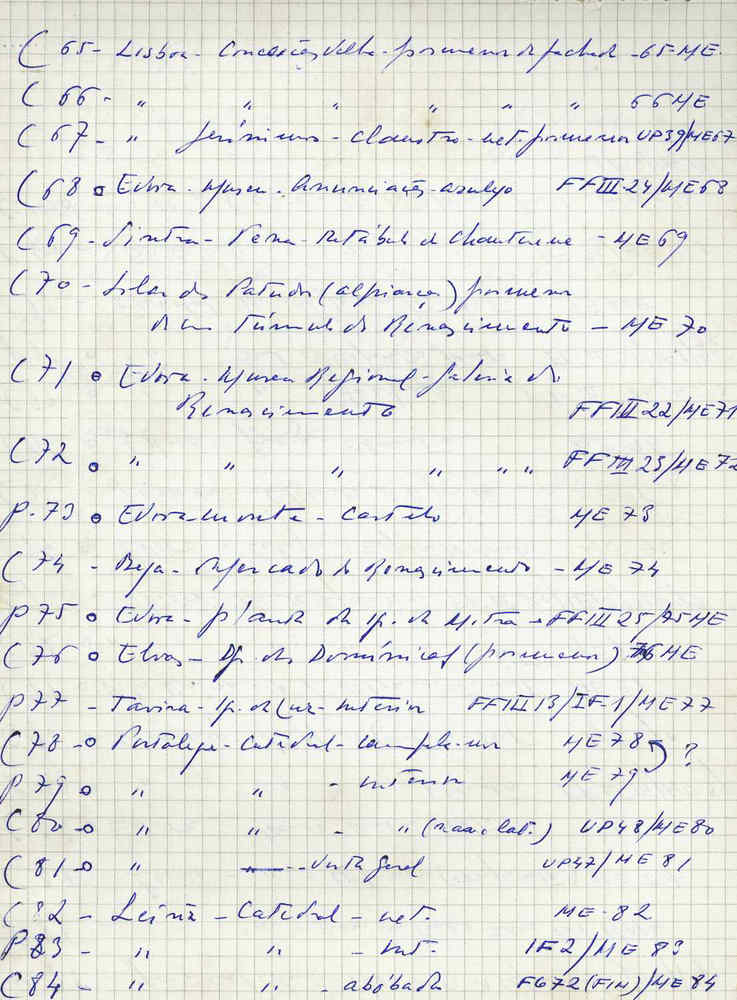 C 65 - Lisboa - Conceição Velha - pormenor da fachada - 65-ME.
C 66 - " " " " " " 66 ME
C 67 - " Jerónimos - Claustro - ext. pormenor UP39/ME67
C 68 o Evora - Museu - Anunciação - azulejo FFIII-24/ME68
C 69 - Sintra - Pena - Retábulo de Chanterene - ME 69
C 70 - Solar dos Patudos (alpiarça) pormenor
de um Túmulo do Renascimento - ME 70
C 71 o Evora - Museu Regional - Galeria do
Renascimento FFIII 22/ME71
C 72 o " " " " " " FFIII 23/ME72
P. 73 o Evora-monte - Castelo ME 73
C 74 - Beja - do Renascimento - ME 74
P 75 o Evora - planta da Ig. da Mitra - FFIII 25/75ME
C 76 o Elvas - Ig. das Domínicas (pormenor) 76 ME
P 77 - Tavira - Ig. da Luz - interior FFIII 13/IF-1/ME77
C 78 - o Portalegre - Catedral - ME 78 ?
P 79 o " " - interior ME 79
C 80 - o " " - " (nave lat.) UP48/ME80
C 81 - o " - vista geral UP47/ME 81
C 82 - Leiria - Catedral - ext. ME-82
P 83 - " " - int. IF2/ME 83
C 84 - " " - abóbada F672(FIM)/ME 84